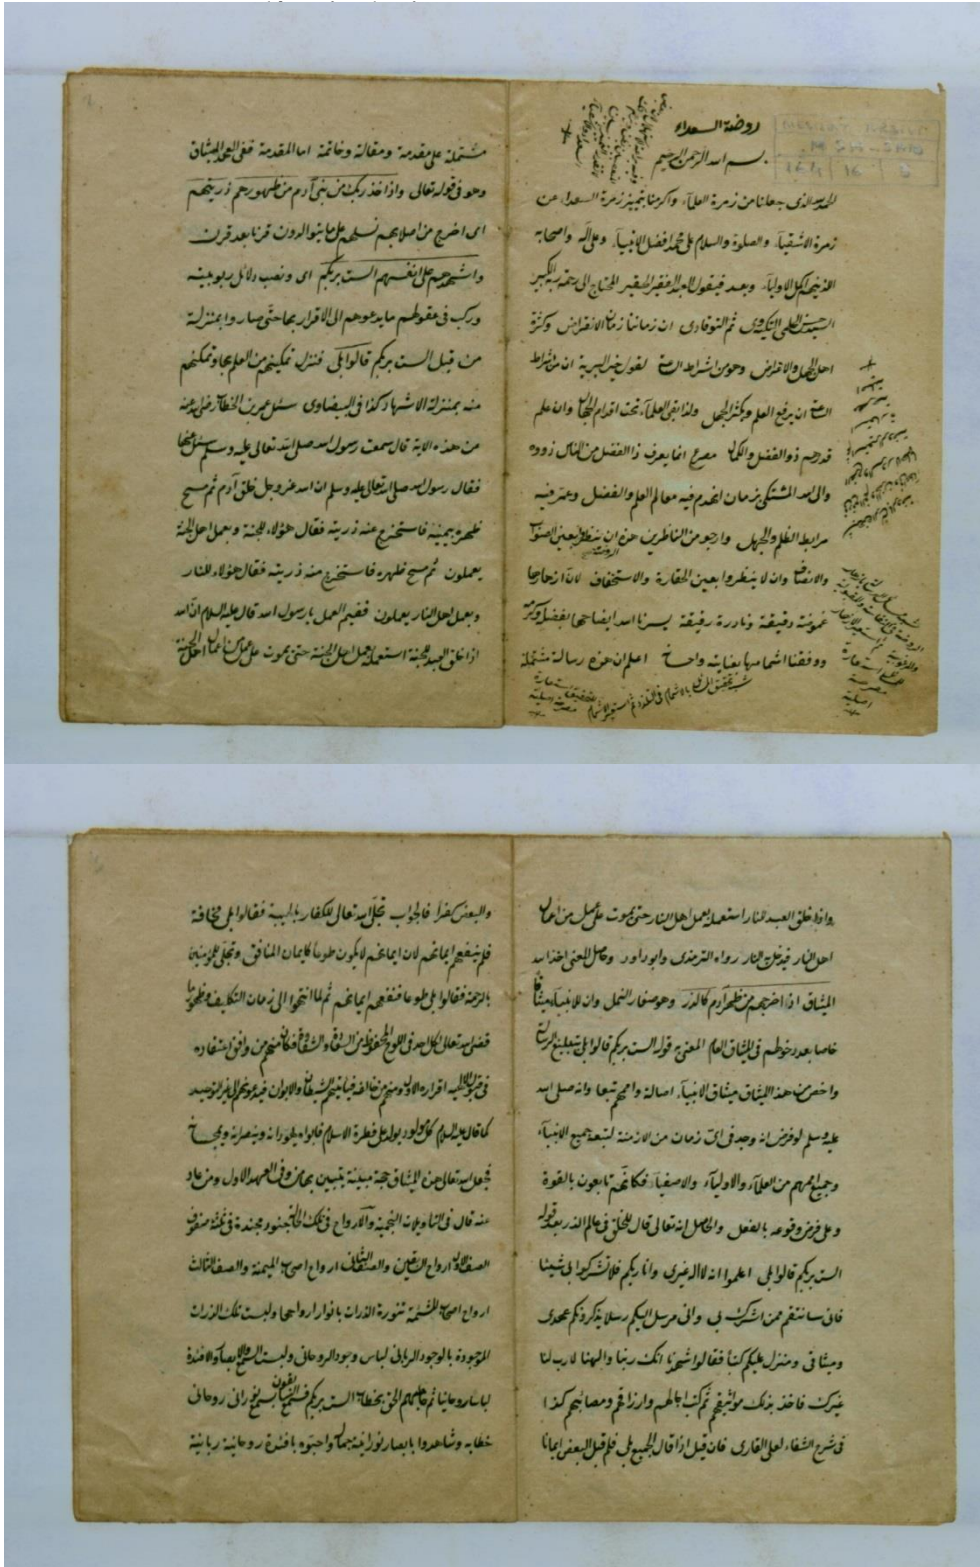 روضة السعداء
بسم الله الرحمن الرحيم
الحمد لله الذى جعلنا من زمرة العلماء واكرمنا بتمييز زمرة السعداء عن
زمرة الاشقياء والصلوة والسلام على محمد افضل الانبياء وعلى آله واصحابه
الذينهم اكمل الاولياء وبعد فيقول العبد الفقير الحقير المحتاج الى رحمة ربه الكبير
السيد حسين ثم التوقادى ان زماننا زمان الانقراض وكثرة
اهل الجهل والاغراض وهو من اشراط الساعة لقول خير البرية ان من اشراط
الساعة ان يرفع العلم ويكثر الجهل ولذا بقى العلماء تحت اقدام الجهال وان علم
قدرهم ذو الفضل والكمال مصرع انما يعرف ذا الفضل من الناس ذووه
والى الله المشتكى من زمان انهدم فيه معالم العلم والفضل وعمر فيه
مرابط الظلم والجهل وارجو من الناظرين هذه ان ينظروا بعين الصواب
والانصاف وان لا ينظروا بعين الحقارة والاستخفاف لان ازهارها
غموضة دقيقة ونادرة رقيقة يسرنا الله ايضاحها بفضله وكرمه
ووفقنا اتمامها بعنايته واحسانه اعلم ان هذه رسالة مشتملة
مشتملة على مقدمة ومقالة وخاتمة اما المقدمة ففى العهد والميثاق
وهو فى قوله تعالى واذ اخذ ربك من بنى آدم من ظهورهم ذريتهم
اى اخرج من اصلابهم نسلهم على ما يتوالدون قرنا بعد قرن
واشهدهم على انفسهم الست بربكم اى ونصب دلائل ربوبيته
وركب فى عقولهم ما يدعوهم الى الاقرار بها حتى صاروا بمنزلة
من قيل الست بربكم قالوا بلى فنزل تمكينهم من العلم بها وتمكنهم
منه بمنزلة الاشهاد كذا فى البيضاوى سئل عمر بن الخطاب رضى الله عنه
من هذه الاية قال سمعت رسول الله صلى الله تعالى عليه وسلم سئل عنها
فقال رسول الله صلى الله تعالى عليه وسلم ان الله عز وجل خلق آدم ثم مسح
ظهره بيمينه فاستخرج عنه ذريته فقال هؤلاء للجنة وبعمل اهل الجنة
يعملون ثم مسح ظهره فاستخرج منه ذريته فقال هؤلاء للنار
وبعمل اهل النار يعملون ففيم العمل يا رسول الله قال عليه السلام ان الله
اذا خلق العبد للجنة استعمله بعمل اهل الجنة حتى يموت على عمل من اعمال اهل الجنة
واذا خلق العبد للنار استعمله بعمل اهل النار حتى يموت على عمل من اعمال
اهل النار فيدخله النار رواه الترمذى وابو داود وحاصل المعنى اخذ الله
الميثاق اذا اخرجهم من ظهر آدم كالذر وهو صغار النمل وان للانبياء ميثاقا
خاصا بعد دخولهم فى الميثاق العام المعنى به قوله الست بربكم قالوا بلى بتبليغ الرسالة
واخص من هذا الميثاق ميثاق الانبياء اصالة واممهم تبعا وانه صلى الله
عليه وسلم لو فرض انه وجد فى اى زمان من الازمنة لتبعه جميع الانبياء
وجميع اممهم من العلماء والاولياء والاصفياء فكانهم تابعون بالقوة
وعلى فرض وقوعه بالفعل والحاصل انه تعالى قال للخلق فى عالم الذر بعد قوله
الست بربكم قالوا بلى اعلموا انه لا اله غيرى وانا ربكم فلا تشركوا بى شيئا
فانى سانتقم ممن اشرك بى وانى مرسل اليكم رسلا يذكرونكم عهدى
وميثاقى ومنزل عليكم كتبا فقالوا شهدنا انك ربنا والهنا لا رب لنا
غيرك فاخذ بذلك مواثيقهم ثم كتب آجالهم وارزاقهم ومصائبهم كذا
فى شرح الشفاء لعلى القارى فان قيل اذا قال الجميع بلى فلم قبل البعض ايمانا
والبعض كفرا فالجواب تجلى الله تعالى للكفار بالهيبة فقالوا بلى مخافة
فلم ينفعهم ايمانهم لان ايمانهم لا يكون طوعا كايمان المنافق وتجلى للمؤمنين
بالرحمة فقالوا بلى طوعا فنفعهم ايمانهم ثم لما انتهوا الى زمان التكليف وظهر ما
قضى الله تعالى لكل احد فى اللوح المحفوظ من السعادة والشقاوة فكان منهم من وافق اعتقاده
فى قبول الالهية اقراره الاول ومنهم من خالفه فيأتيهم الشيطان والابوان فيدعونهم الى غير التوحيد
كما قال عليه السلام كل مولود يولد على فطرة الاسلام فابواه يهودانه وينصرانه ويمجسانه
فجعل الله تعالى هذا الميثاق حجة مبينة يتبين بها من وفى العهد الاول ومن عاد
عنه قال فى التأويلات النجمية والارواح فى تلك الحالة جنود مجندة فى ثلثة صفوف
الصف الاول ارواح السابقين والصف الثانى ارواح اصحاب الميمنة والصف الثالث
ارواح اصحاب المشئمة تنورة الذرات بانوار ارواحها ولبست تلك الذرات
الموجودة بالوجود الربانى لباس وجود الروحانى ولبست السمع والابصار والافئدة
لباسا روحانيا ثم خاطبهم الحق بخطاب الست بربكم فسمع السابقون بسمع نورانى روحانى
خطابه وشاهدوا بابصار نورانية جماله واحبوه بافئدة روحانية ربانية